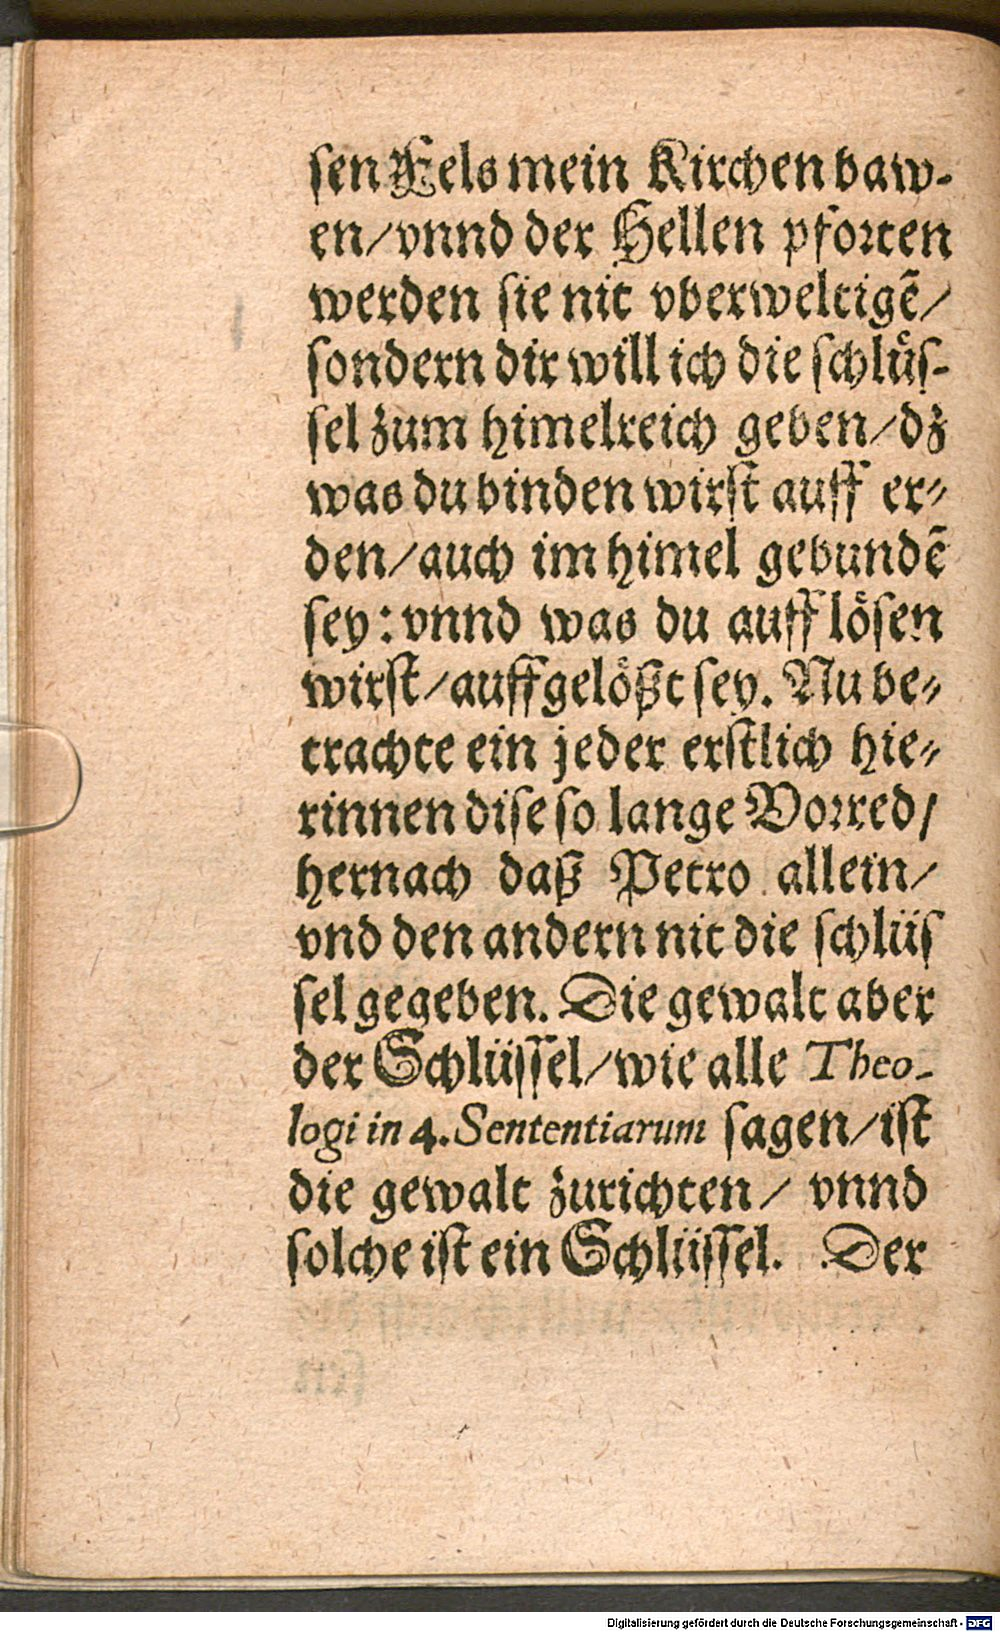 sen Fels mein Kirchen baw-
en/vnnd der Hellen pforten
werden sie nit vberweltigẽ/
sondern dir will ich die schlüs-
sel zum himelreich geben/dz
was du binden wirst auff er-
den/auch im himel gebundẽ
sey: vnnd was du auff lösen
wirst/auffgelößt sey. Nu be-
trachte ein jeder erstlich hie-
rinnen dise so lange Vorred/
hernach daß Petro allein/
vnd den andern nit die schlüs
sel gegeben. Die gewalt aber
der Schlüssel/wie alle Theo-
logi in 4. Sententiarum sagen/ist
die gewalt zurichten/ vnnd
solche ist ein Schlüssel. Der
Digitalisierung gefördert durch die Deutsche Forschungsgemeinschaft - DFG